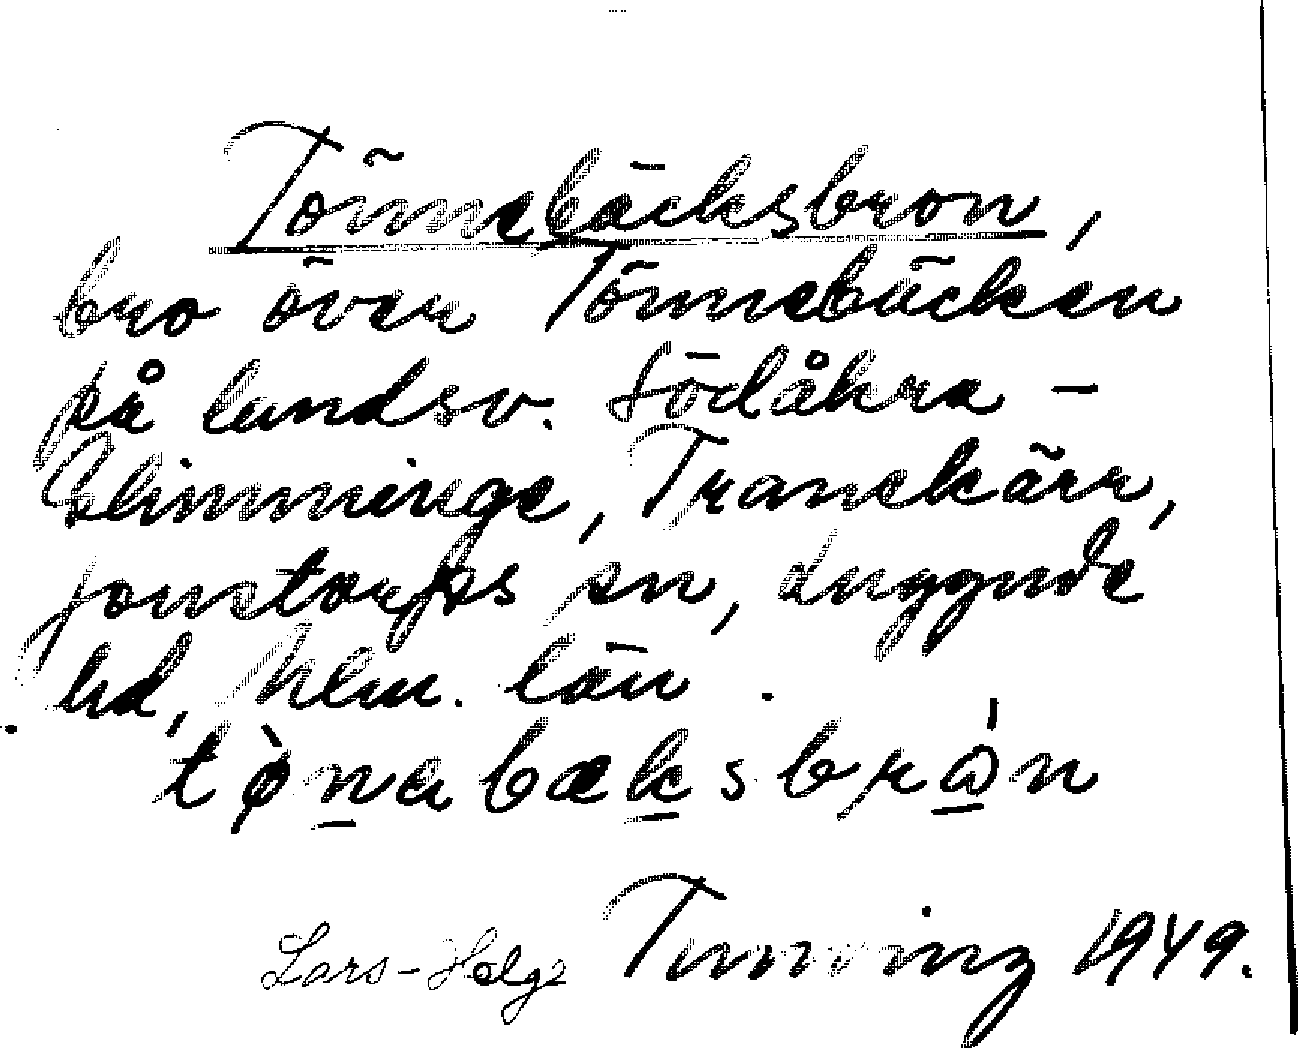 Tönnebäcksbron,
bro över Tönnebäcken
på landsv. Södåkra -
Glimminge, Tranekärr,
Jonstorps sn, Luggude
hd, Mlm. län.
tø̀nabæksbrón
Lars-Helge Tunving 1949.